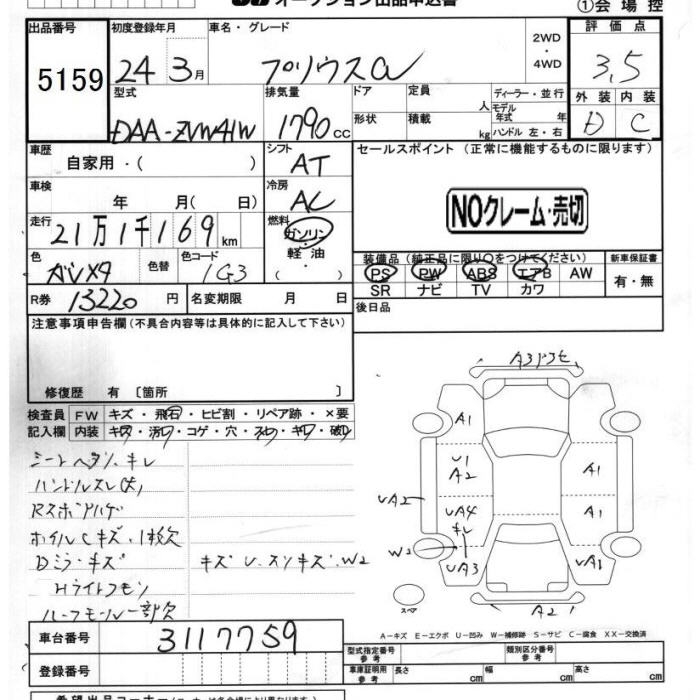 オークション出品申込書 ①会場控
出品番号 初度登録年月 車名・グレード 2WD ・ 4WD 評価点
5159 24年3月 プリウスα 3.5
型式 排気量 ドア 定員 人 ディーラー・並行 外装 内装
DAA-ZVW41W 1790cc 形状 積載 kg モデル年式 年 ハンドル 左・右 D C
車歴 自家用・( ) シフト AT セールスポイント (正常に機能するものに限ります)
車検 年 月( 日) 冷房 AC
NOクレーム・売切
走行 21万1千169km 燃料 ガソリン・軽油・
色 ガンメタ 色替 色コード 1G3
装備品(純正品に限り○をつけてください) 新車保証書
PS PW ABS エアB AW 有・無
SR ナビ TV カワ
R券 13220円 名変期限 月 日 後日品
注意事項申告欄(不具合内容等は具体的に記入して下さい)
修復歴 有〔箇所 〕
検査員 FW キズ・飛石・ヒビ割・リペア跡・×要
記入欄 内装 キズ・汚れ・コゲ・穴・スレ・キレ・破れ
シートヘタリ、キレ
ハンドルスレ(大)
ホイルCキズ、1枚欠
Dミラーキズ キズ U、スリキズ、W2
Hライトクモリ
ルーフモール一部欠
A1
U1
A2 A1
UA2 UA4 A1
キレ
W2 UA3
スペア A2
A-キズ E-エクボ U-凹み W-補修跡 S-サビ C-腐食 XX-交換済
車台番号 3117759
型式指定番号 参考 類別区分番号 参考
登録番号 車庫証明用 参考 長さ cm 幅 cm 高さ cm